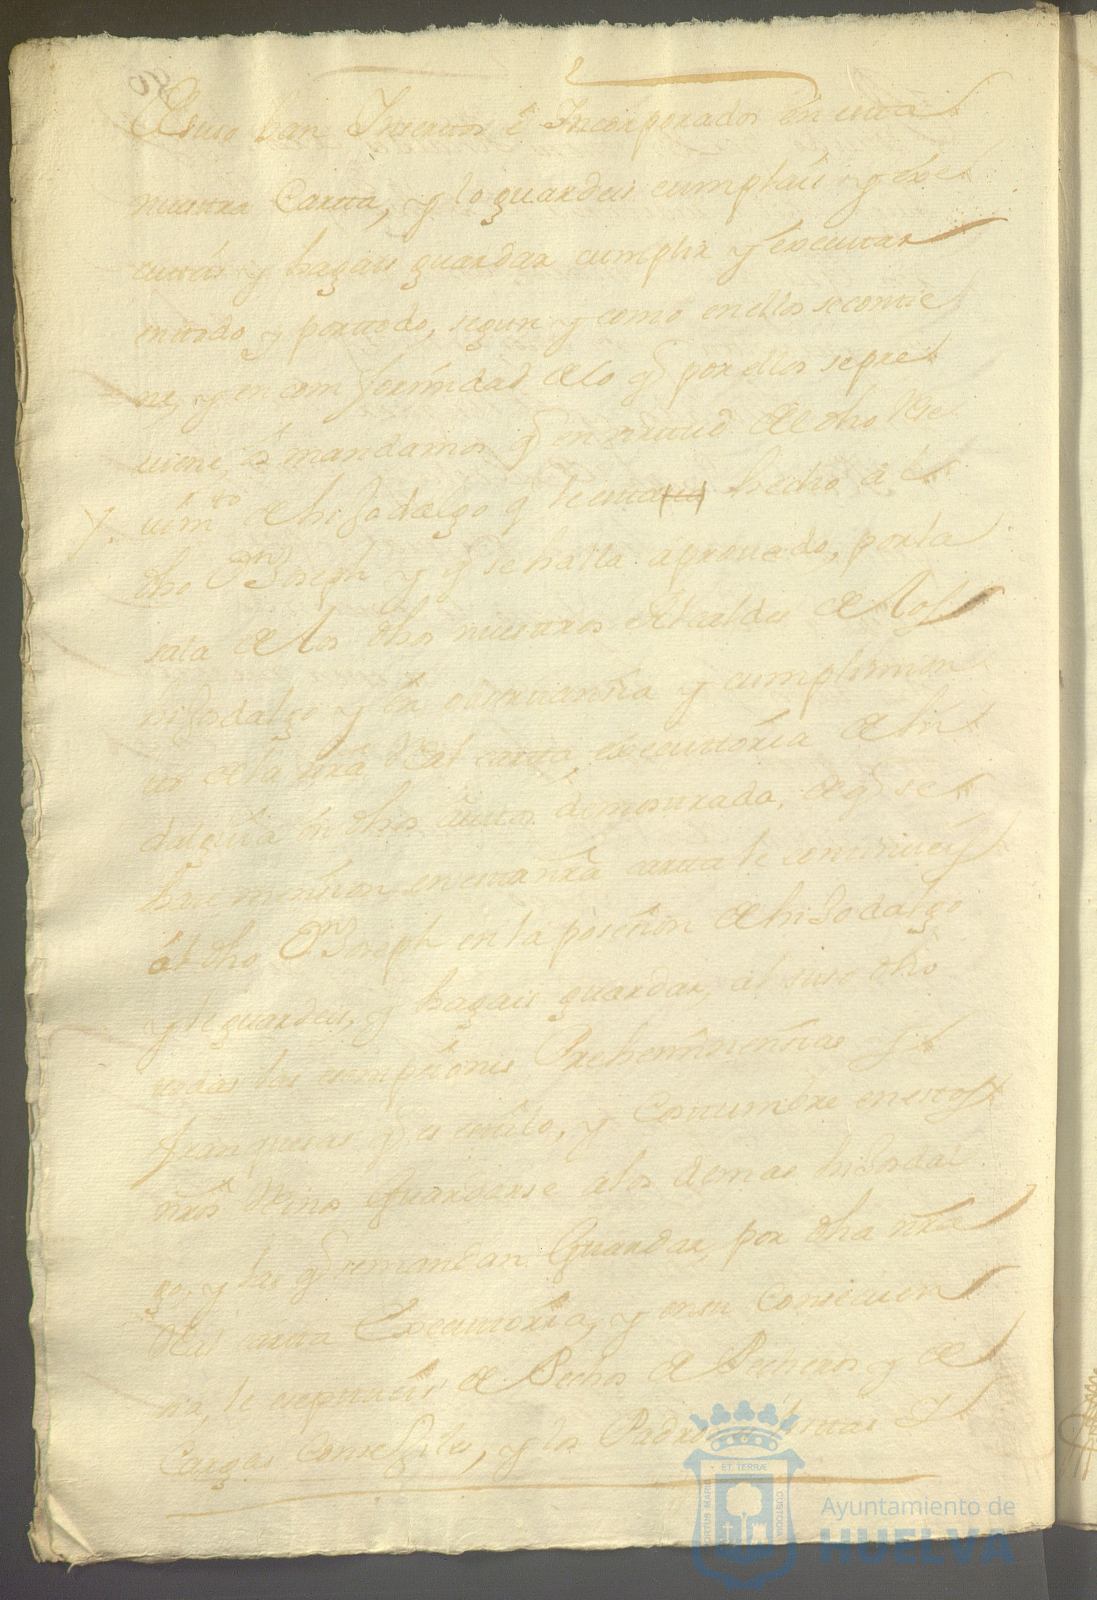 de suso ban Insertos é Incorporados en esta
nuestra Carta, y lo guardeis cumplais y exe
cuteis y hagais guardar cumplir y executar
entodo y portodo, segun y como enellos secontie
ne, y en comformidad de lo q̃ por ellos sepre
viene, os mandamos q̃ en virtud de dho Re
civimto de hijodalgo q̃ leesta hecho a el
dho Dn Joseph y q̃ sehalla aprovado, porla
sala de los dhos nuestros Alcaldes de los
hijosdalgo y en observansia y cumplimien
to de la nrâ Real carta executoria de hi
dalguia en dhos autos demostrada, de q̃ se
hase mension enesta nrâ carta le continueis
al dho Dn Joseph en la posesion de hijodalgo
y le guardeis, y hagais guardar, al suso dho
todas las exempsiones Preheminensias y
franquesas q̃ es estilo, y Costumbre enestos
nrôs Reinos Guardarse alos demas hijosdal
go, y las q̃ semandan Guardar, por dha nrâ
Real carta Executoria, y ensu Consecuen
sia, le exeptueis de Pechos de Pecheros y de
Cargas Consegiles, y los Padrones listas y
Ayuntamiento de
HUELVA